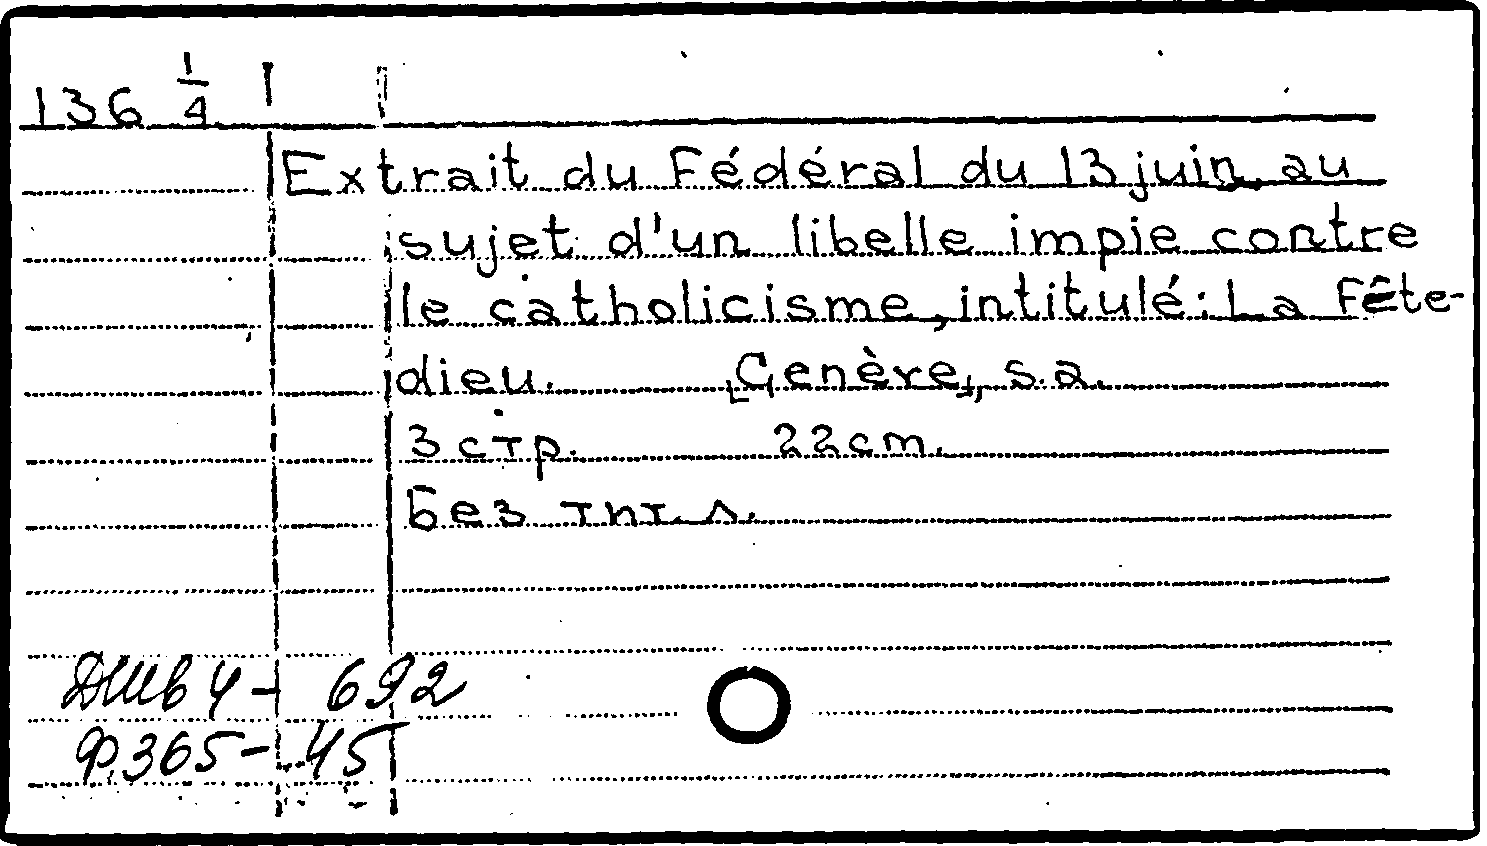 136 1/4
Extrait du Fédéral du 13 juin, au
sujet d'un libelle impie contre
le catholicisme, intitulé: La Fête-
dieu. [Genève], s.a.
3 стр. 22 cm.
Без тит. л.
692
Ф. 365-45